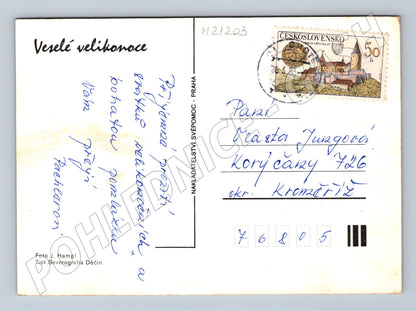 M21203
Veselé velikonoce
ČESKOSLOVENSKO
50 h
Příjemné prožití
svátků velikonočních a
bohatou pomlázku
Vám přejí
Foto J. Hampl
Tisk Severografia Děčín
NAKLADATELSTVÍ SVÉPOMOC - PRAHA
Paní
Vlasta Jungová
Koryčany 726
okr. Kroměříž
7 6 8 0 5